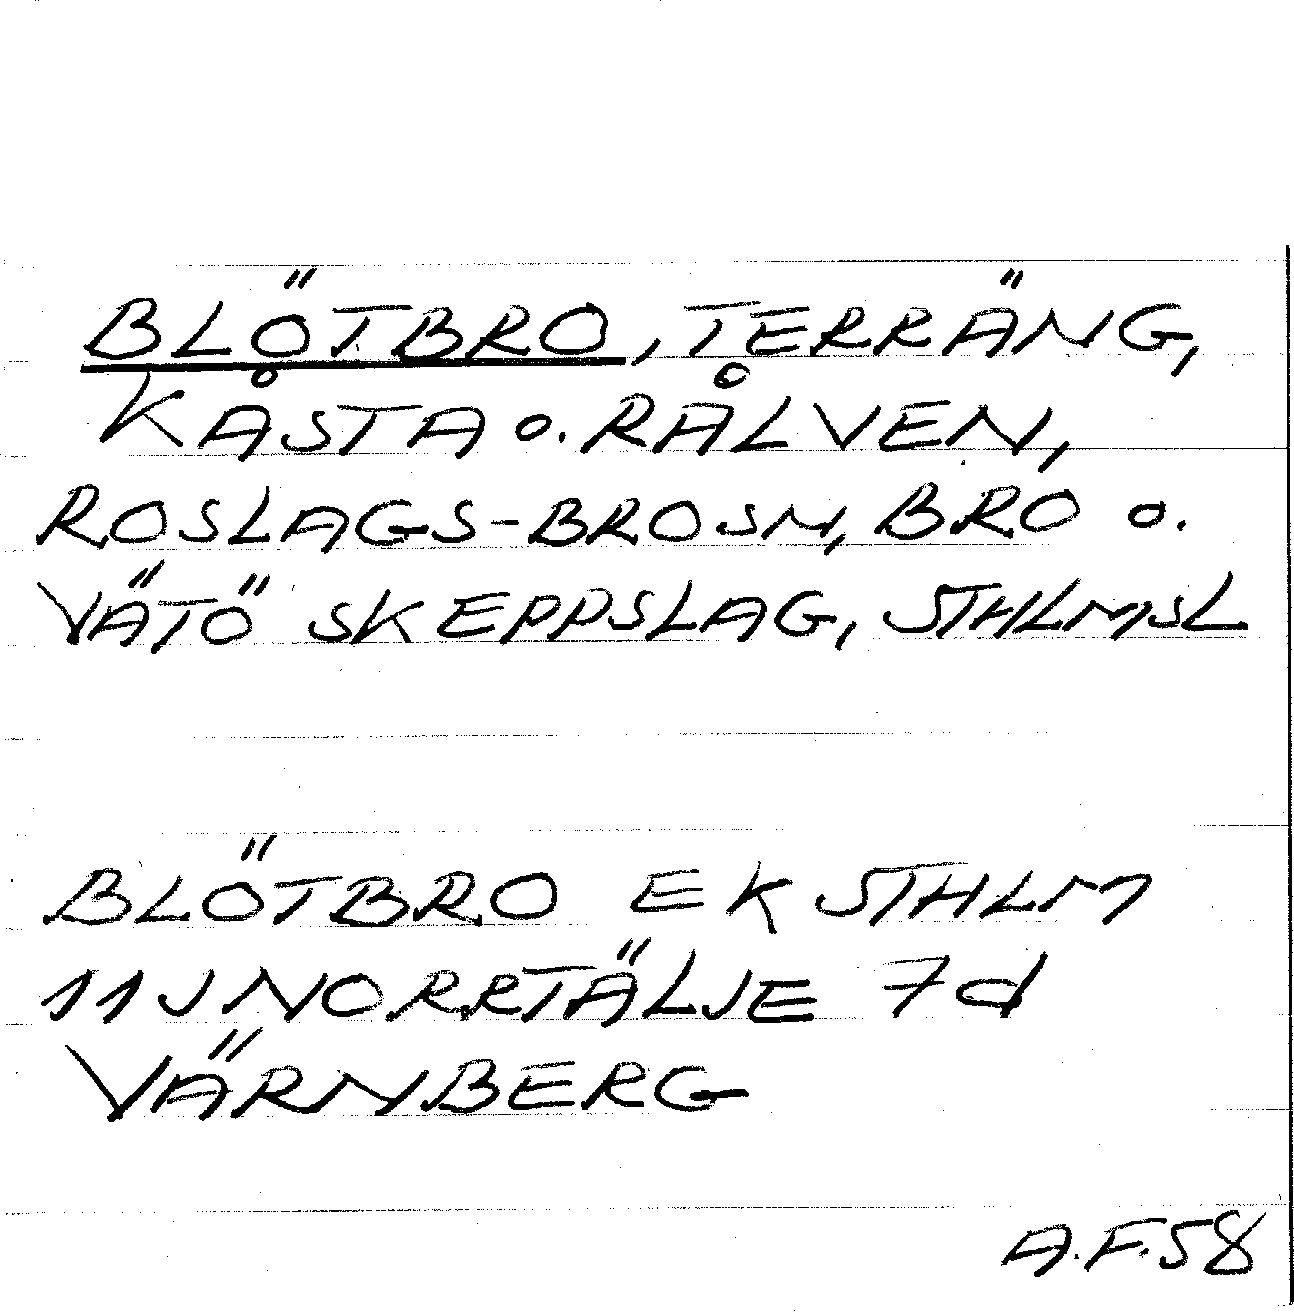 BLÖTBRO, TERRÄNG,
KÅSTA o. RÅLVEN,
ROSLAGS-BROSN, BRO o.
VÄTÖ SKEPPSLAG, STHLMSL
BLÖTBRO EK STHLM
11J NORRTÄLJE 7d
VÄRNBERG
A.F.58